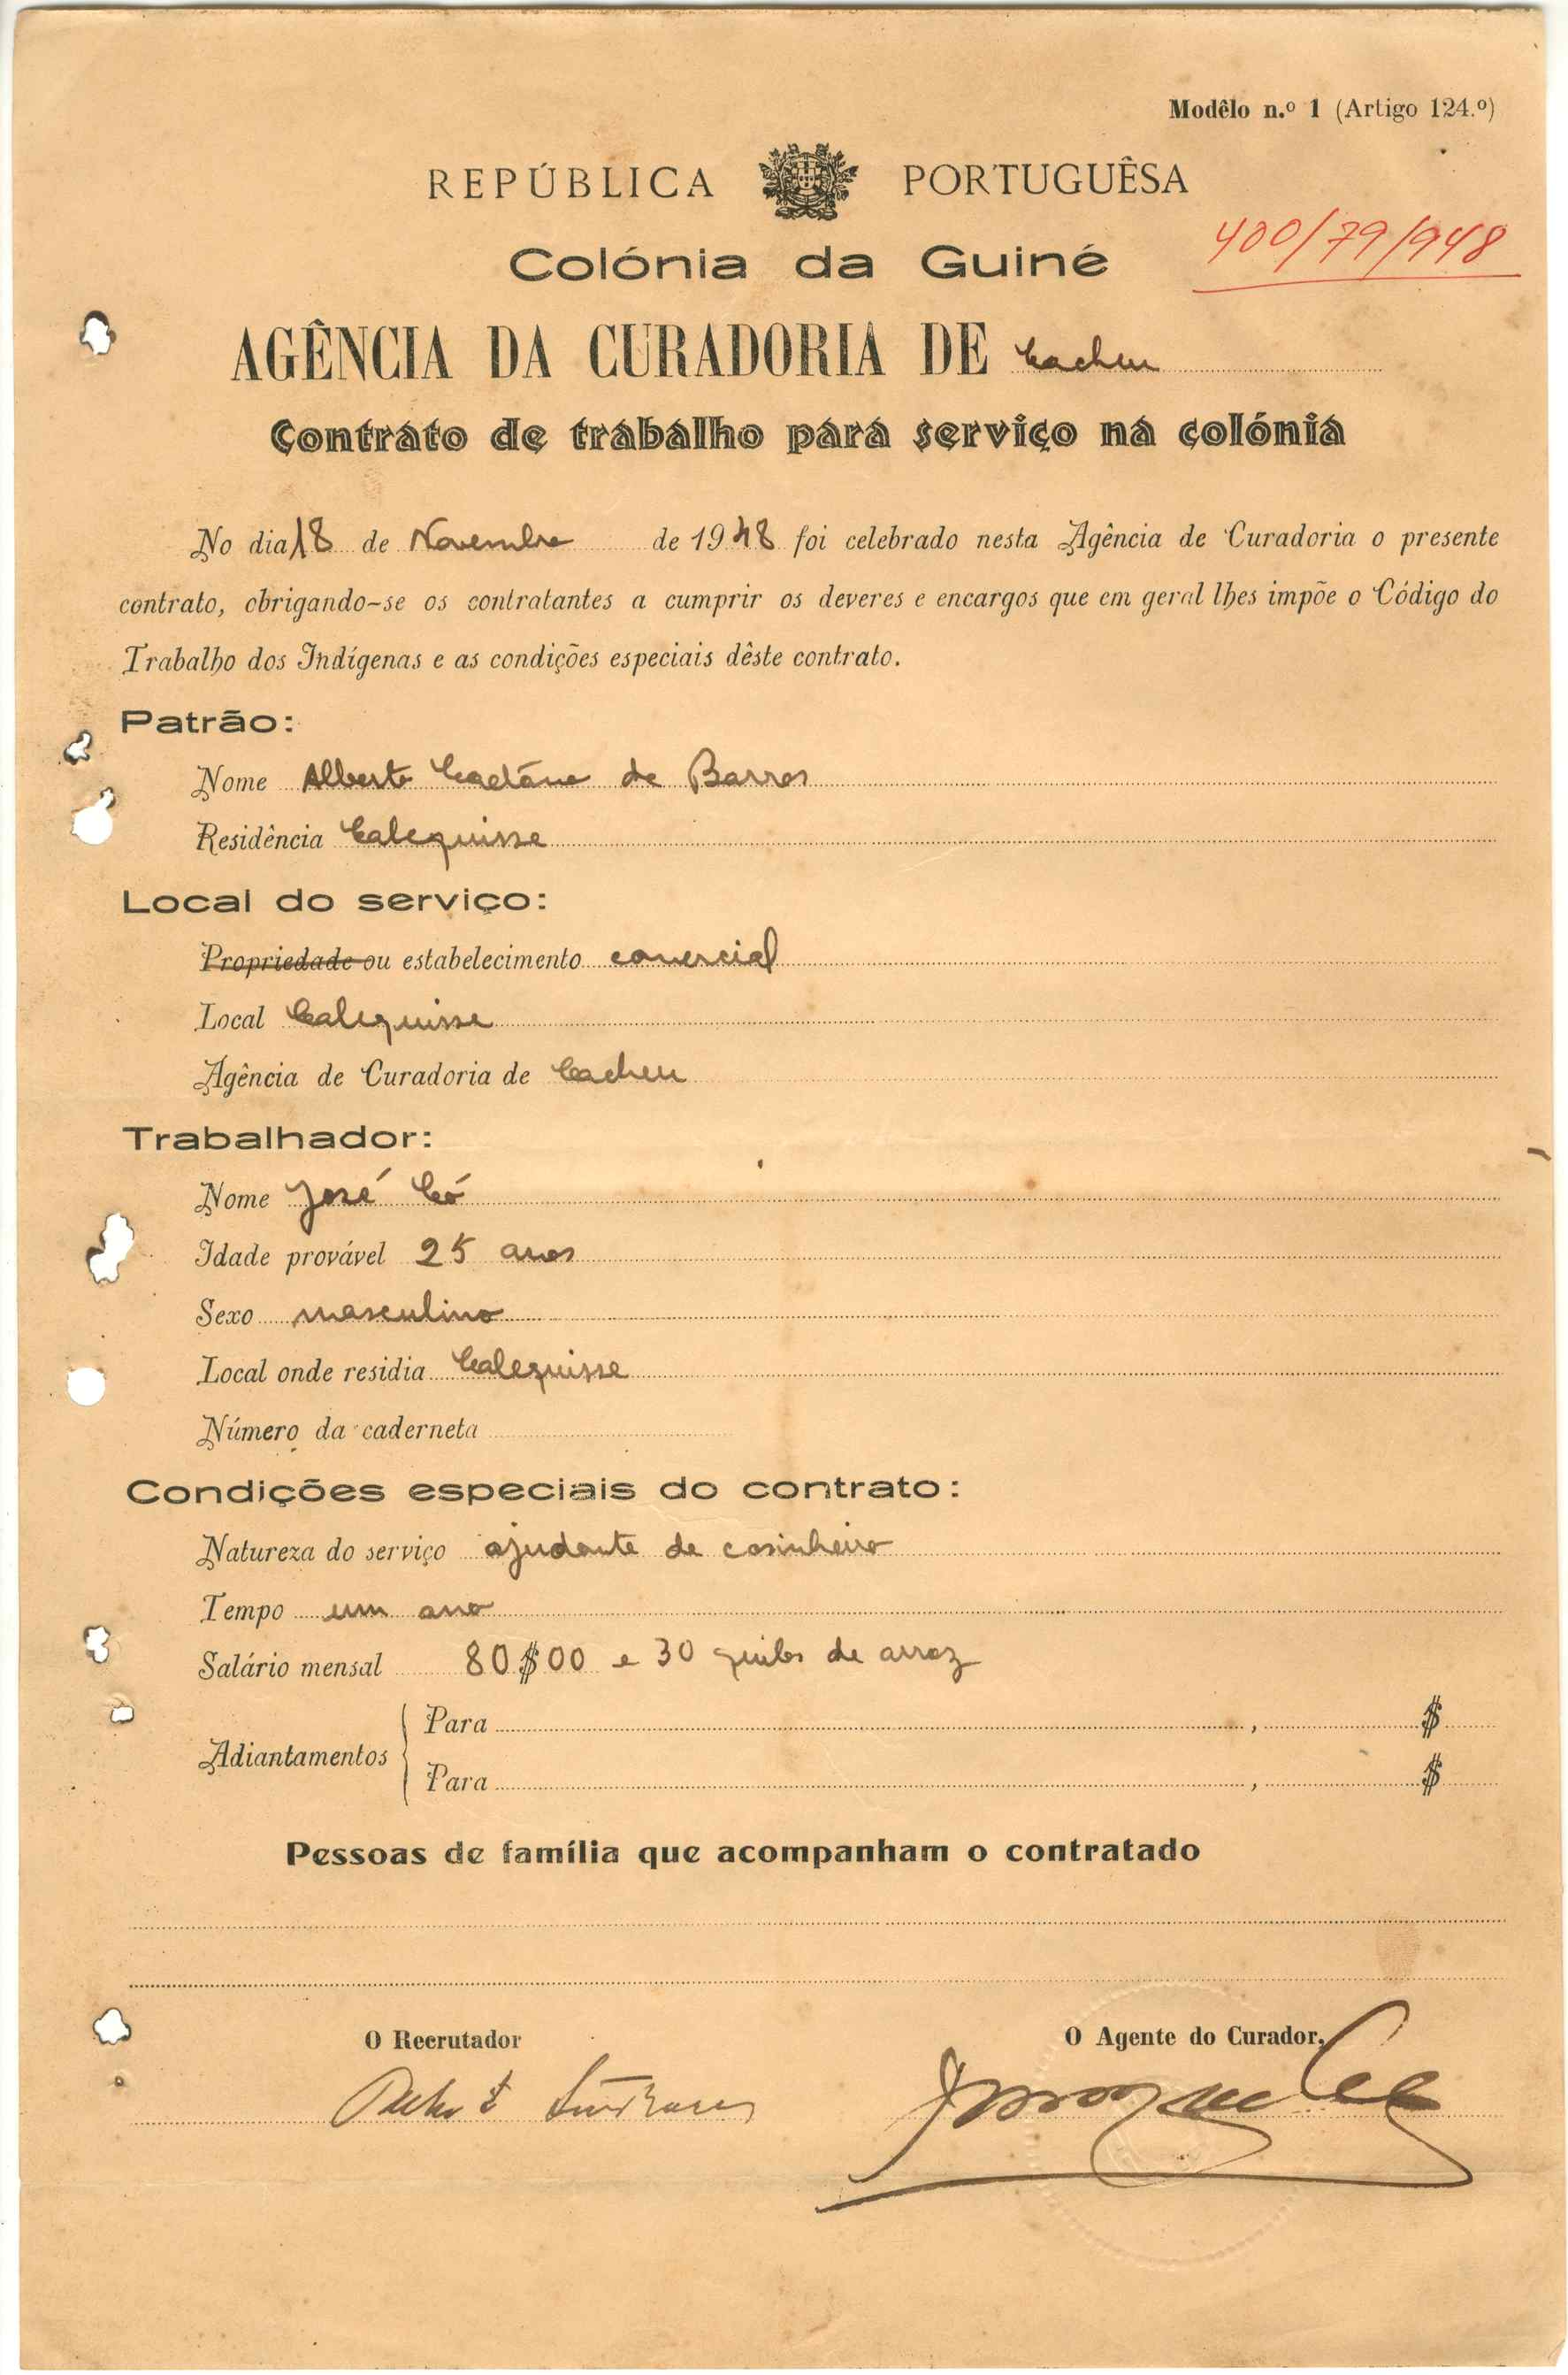 Modêlo n.º 1 (Artigo 124.º)
REPÚBLICA PORTUGUÊSA
400/79/948
Colónia da Guiné
AGÊNCIA DA CURADORIA DE Cacheu
Contrato de trabalho para serviço na colónia
No dia 18 de Novembro de 1948 foi celebrado nesta Agência de Curadoria o presente
contrato, obrigando-se os contratantes a cumprir os deveres e encargos que em geral lhes impõe o Código do
Trabalho dos Indígenas e as condições especiais dêste contrato.
Patrão:
Nome Alberto Caetáno de Barros
Residência Calequisse
Local do serviço:
Propriedade ou estabelecimento comercial
Local Calequisse
Agência de Curadoria de Cacheu
Trabalhador:
Nome José Có
Idade provável 25 anos
Sexo masculino
Local onde residia Calequisse
Número da caderneta
Condições especiais do contrato:
Natureza do serviço ajudante de cosinheiro
Tempo um ano
Salário mensal 80$00 e 30 quilos de arroz
Adiantamentos
Para , $
Para , $
Pessoas de família que acompanham o contratado
O Recrutador
O Agente do Curador,